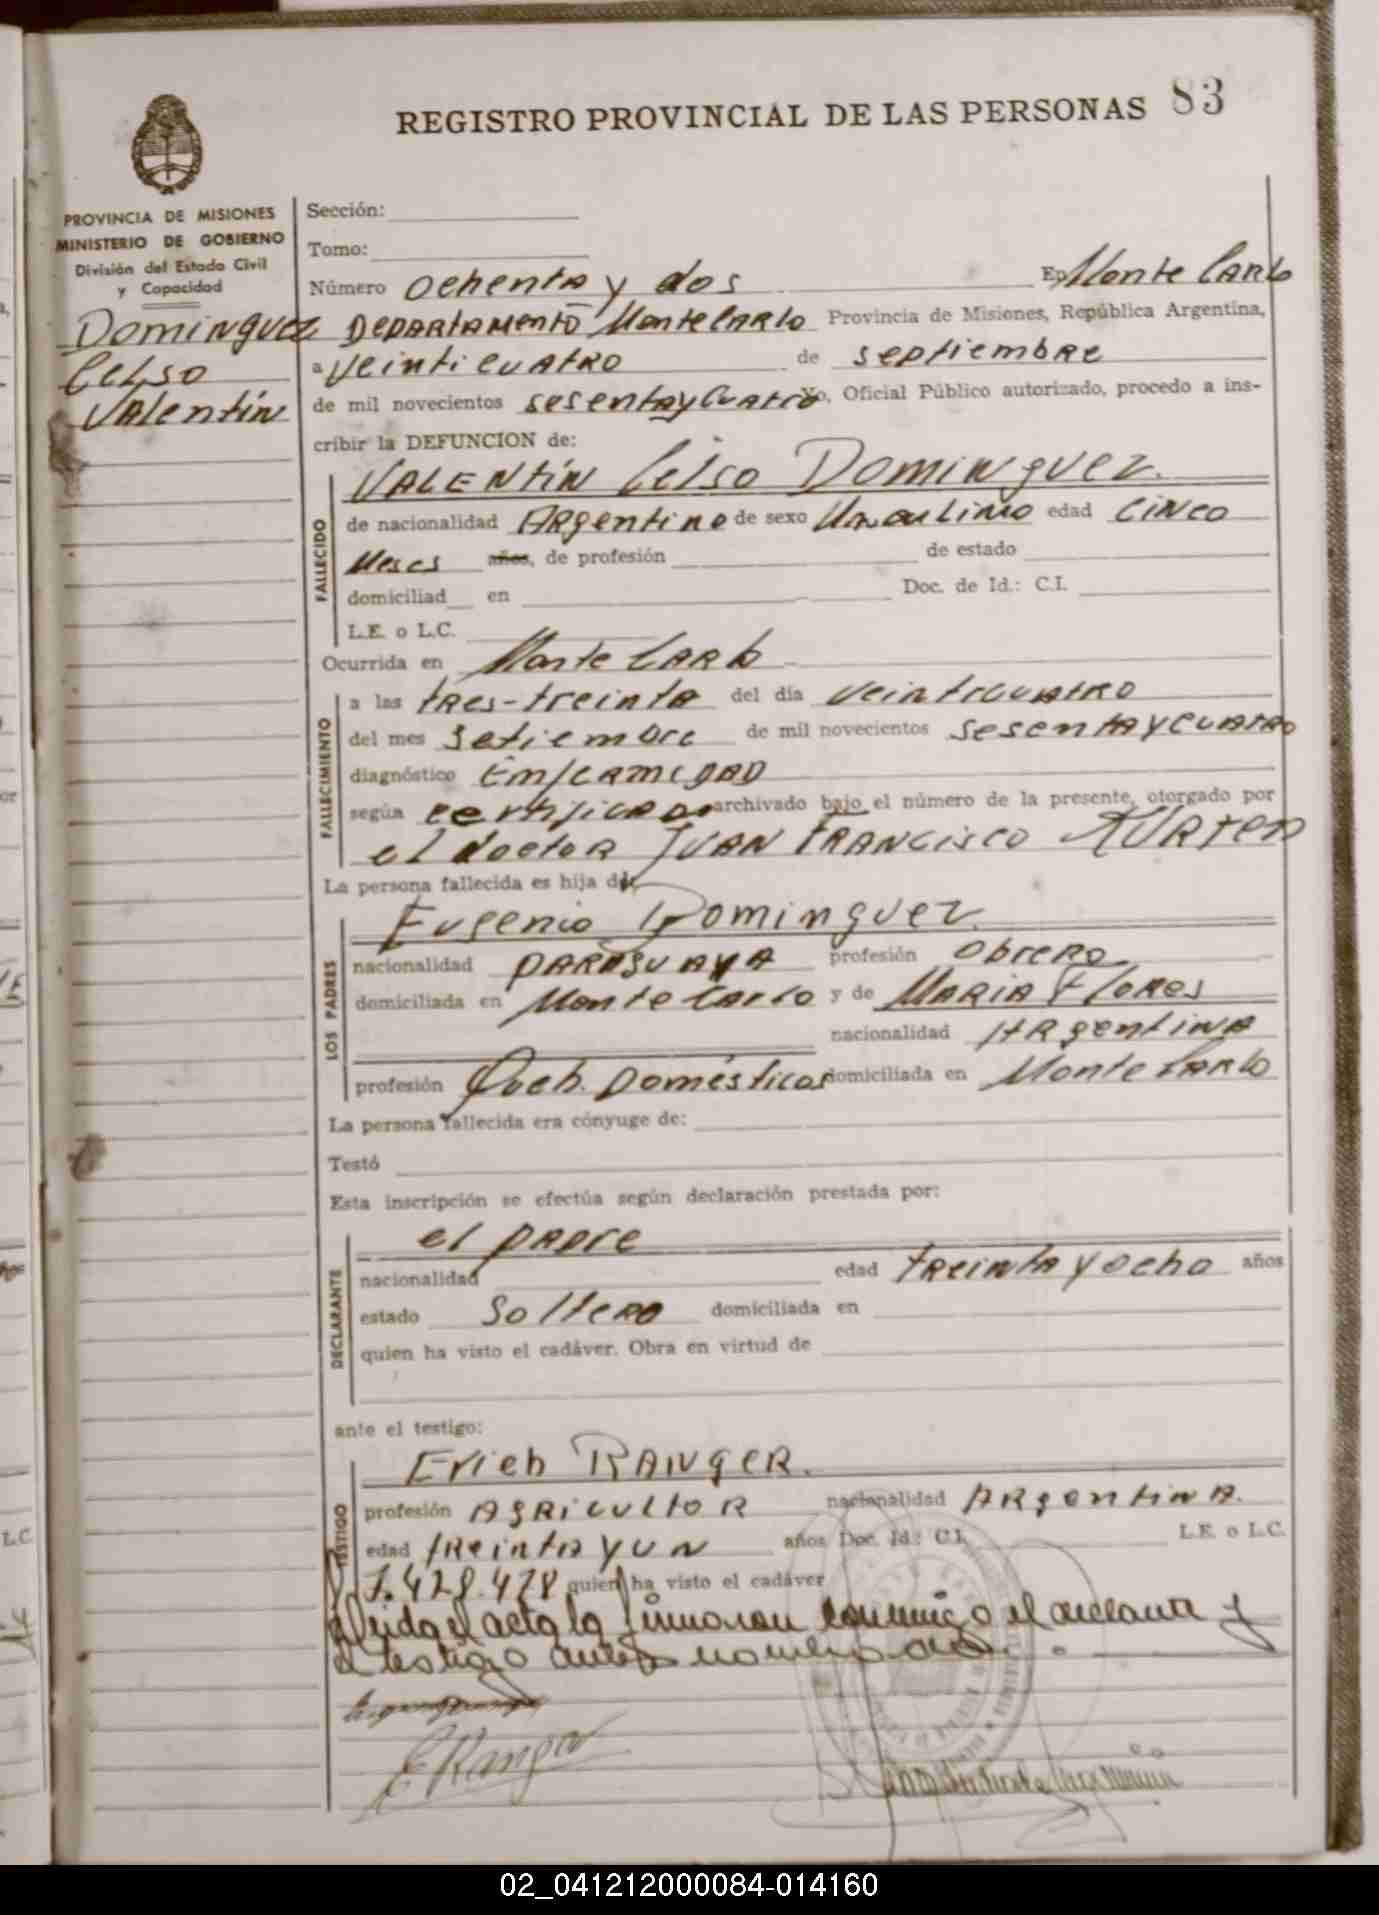 REGISTRO PROVINCIAL DE LAS PERSONAS 83
PROVINCIA DE MISIONES
MINISTERIO DE GOBIERNO
División del Estado Civil
y Capacidad
Dominguez
Celso
Valentín
Sección:
Tomo:
Número ochenta y dos En Monte Carlo
Departamento Monte Carlo Provincia de Misiones, República Argentina,
a veinticuatro de septiembre
de mil novecientos sesenta y cuatro Yo, Oficial Público autorizado, procedo a ins-
cribir la DEFUNCION de:
FALLECIDO
Valentín Celso Dominguez.
de nacionalidad Argentino de sexo Masculino edad cinco
meses años, de profesión de estado
domiciliad en Doc. de Id.: C.I.
L.E. o L.C.
Ocurrida en Monte Carlo
FALLECIMIENTO
a las tres-treinta del día veinticuatro
del mes setiembre de mil novecientos sesenta y cuatro
diagnóstico Enfermedad
según certificado archivado bajo el número de la presente, otorgado por
el doctor Juan Francisco Kurten
La persona fallecida es hija de
LOS PADRES
Eugenio Dominguez
nacionalidad paraguaya profesión obrero
domiciliada en Monte Carlo y de Maria Flores
nacionalidad Argentina
profesión Queh. Domésticos domiciliada en Monte Carlo
La persona fallecida era cónyuge de:
Testó
Esta inscripción se efectúa según declaración prestada por:
DECLARANTE
el padre
nacionalidad edad treinta y ocho años
estado soltero domiciliada en
quien ha visto el cadáver. Obra en virtud de
ante el testigo:
TESTIGO
Erich Ranger.
profesión Agricultor nacionalidad Argentina.
edad treinta y un años Doc. Id.: C.I. L.E. o L.C.
7.428.478 quien ha visto el cadáver
leida el acta la firmaron conmigo el declarante y
el testigo antes nombrado.
E Ranger
02_041212000084-014160